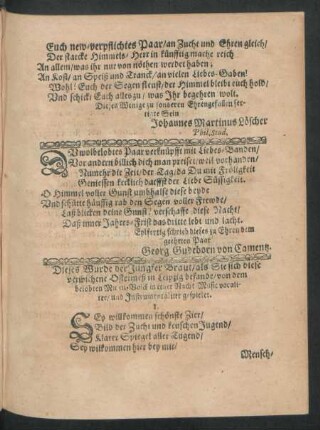 Euch new-verpflichtes Paar/ an Zucht und Ehren gleich/
Der starcke Himmels-Herr in künfftig mache reich
An allem/ was ihr nur von nöthen werdet haben;
An Kost/ an Speiß und Tranck/ an vielen Liebes-Gaben!
Wohl! Euch der Segen fleust/ der Himmel bleibt euch hold/
Und schickt Euch alles zu/ was Ihr begehren wolt.
Dieses Wenige zu sonderen Ehrengefallen
Sein
Johannes Martinus Löscher
Phil. Stud.
Wolbelobtes Paar verknüpfft mit Liebes-Banden/
Vor andern billich dich man preise; weil vorhanden/
Nunmehr die Zeit/ der Tag/ da Du mit Fröligkeit
Geniessen kecklich darffst der Liebe Süssigkeit.
O Himmel voller Gunst umbhalse diese beyde
Und schütte häuffig rab den Segen voller Frewde/
Laß blicken deine Gunst/ verschaffe diese Nacht/
Daß immer Jahres-Frist das dritte lebt und lacht.
Eylfertig schrieb dieses zu Ehren dem
geehrten Paar
Georg Gudeborn von Camentz.
Dieses Wurde der Jungfer Braut/ als Sie sich diese
verwichene Ostermeß in Leipzig befande/ von dem
in einer Nacht-Music
und Instrumentaliter gespielet.
1.
SEy willkommen schönste Zier/
Bild der Zucht und keuschen Jugend/
Klarer Spiegel aller Tugend/
Sey wilkommen hier bey mir/
Mensch-